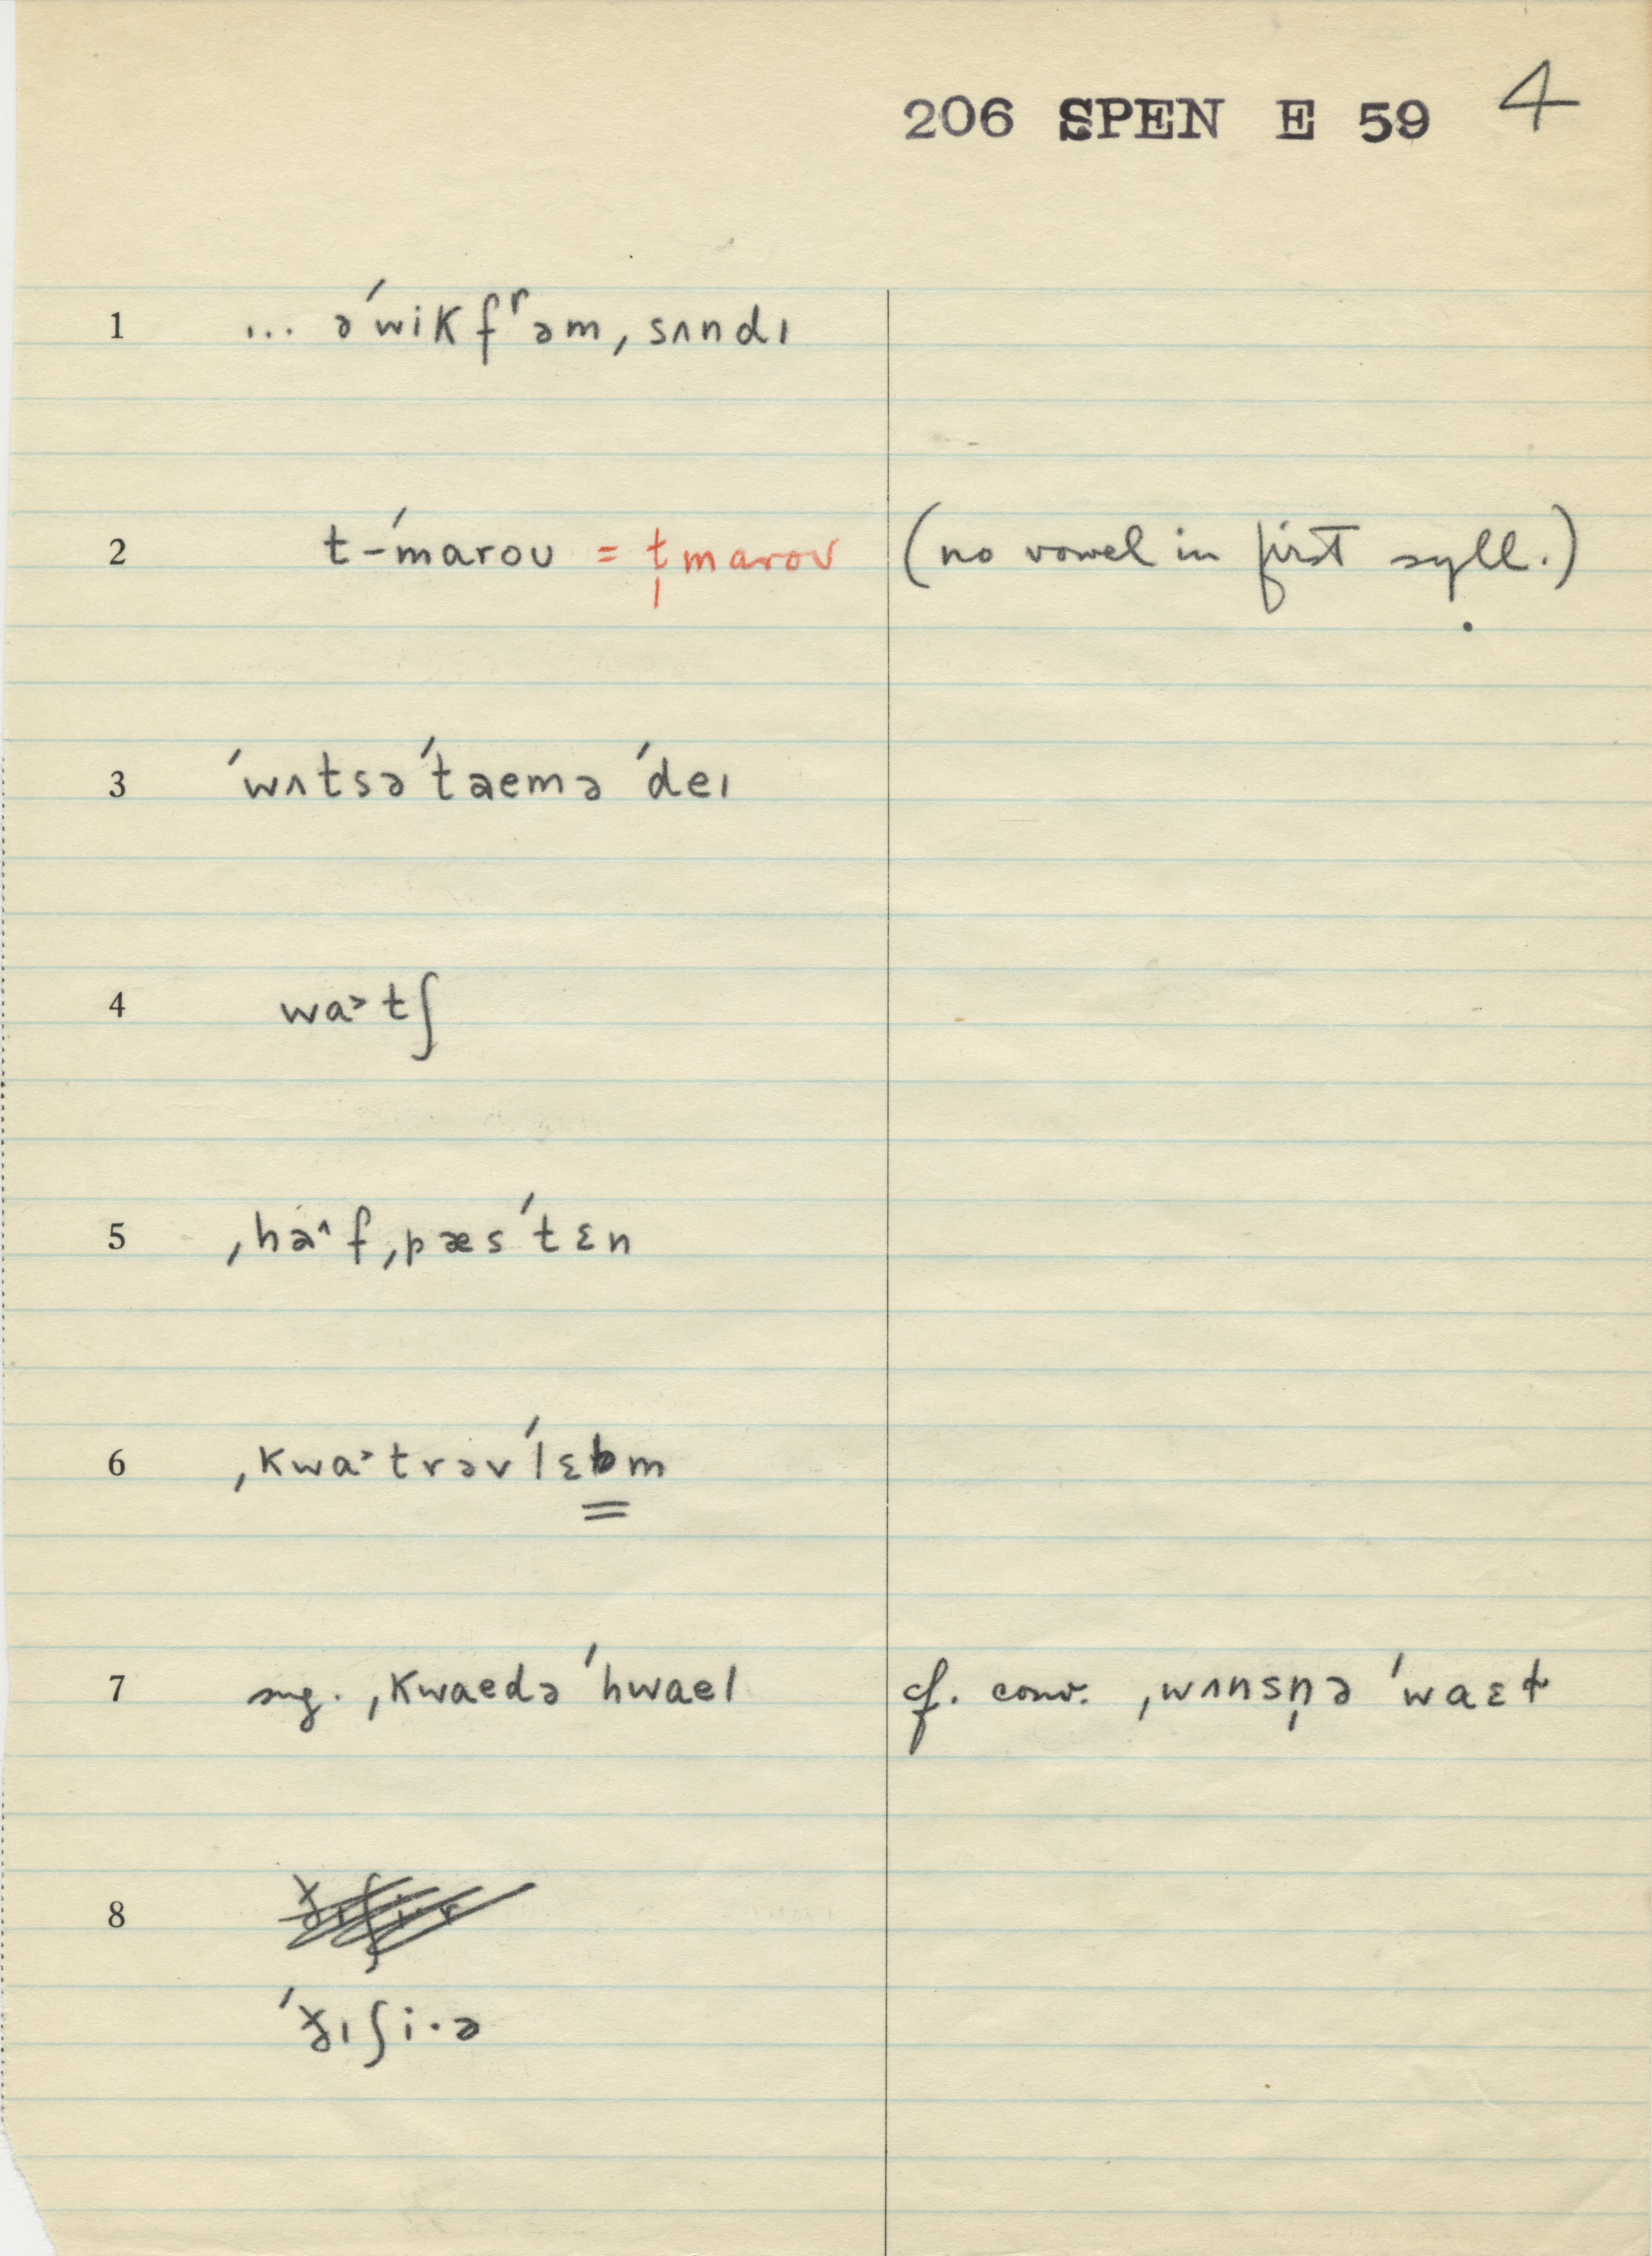 206 SPEN E 59 4
1 ... əˊwikfʳəm, sʌndɪ
2 t-ˊmarou = t̩marou (no vowel in first syll.)
3 ˊwʌtsəˊtaemə ˊdeɪ
4 wa˃tʃ
5 ˌha^f ˌpæsˊtɛn
6 ˌkwa˃trəvˊlɛbm
7 sug. ˌkwaedəˊhwael cf. conv. ˌwʌnsn̩ə ˊwaɛɫ
8
ˊɪʃi·ə